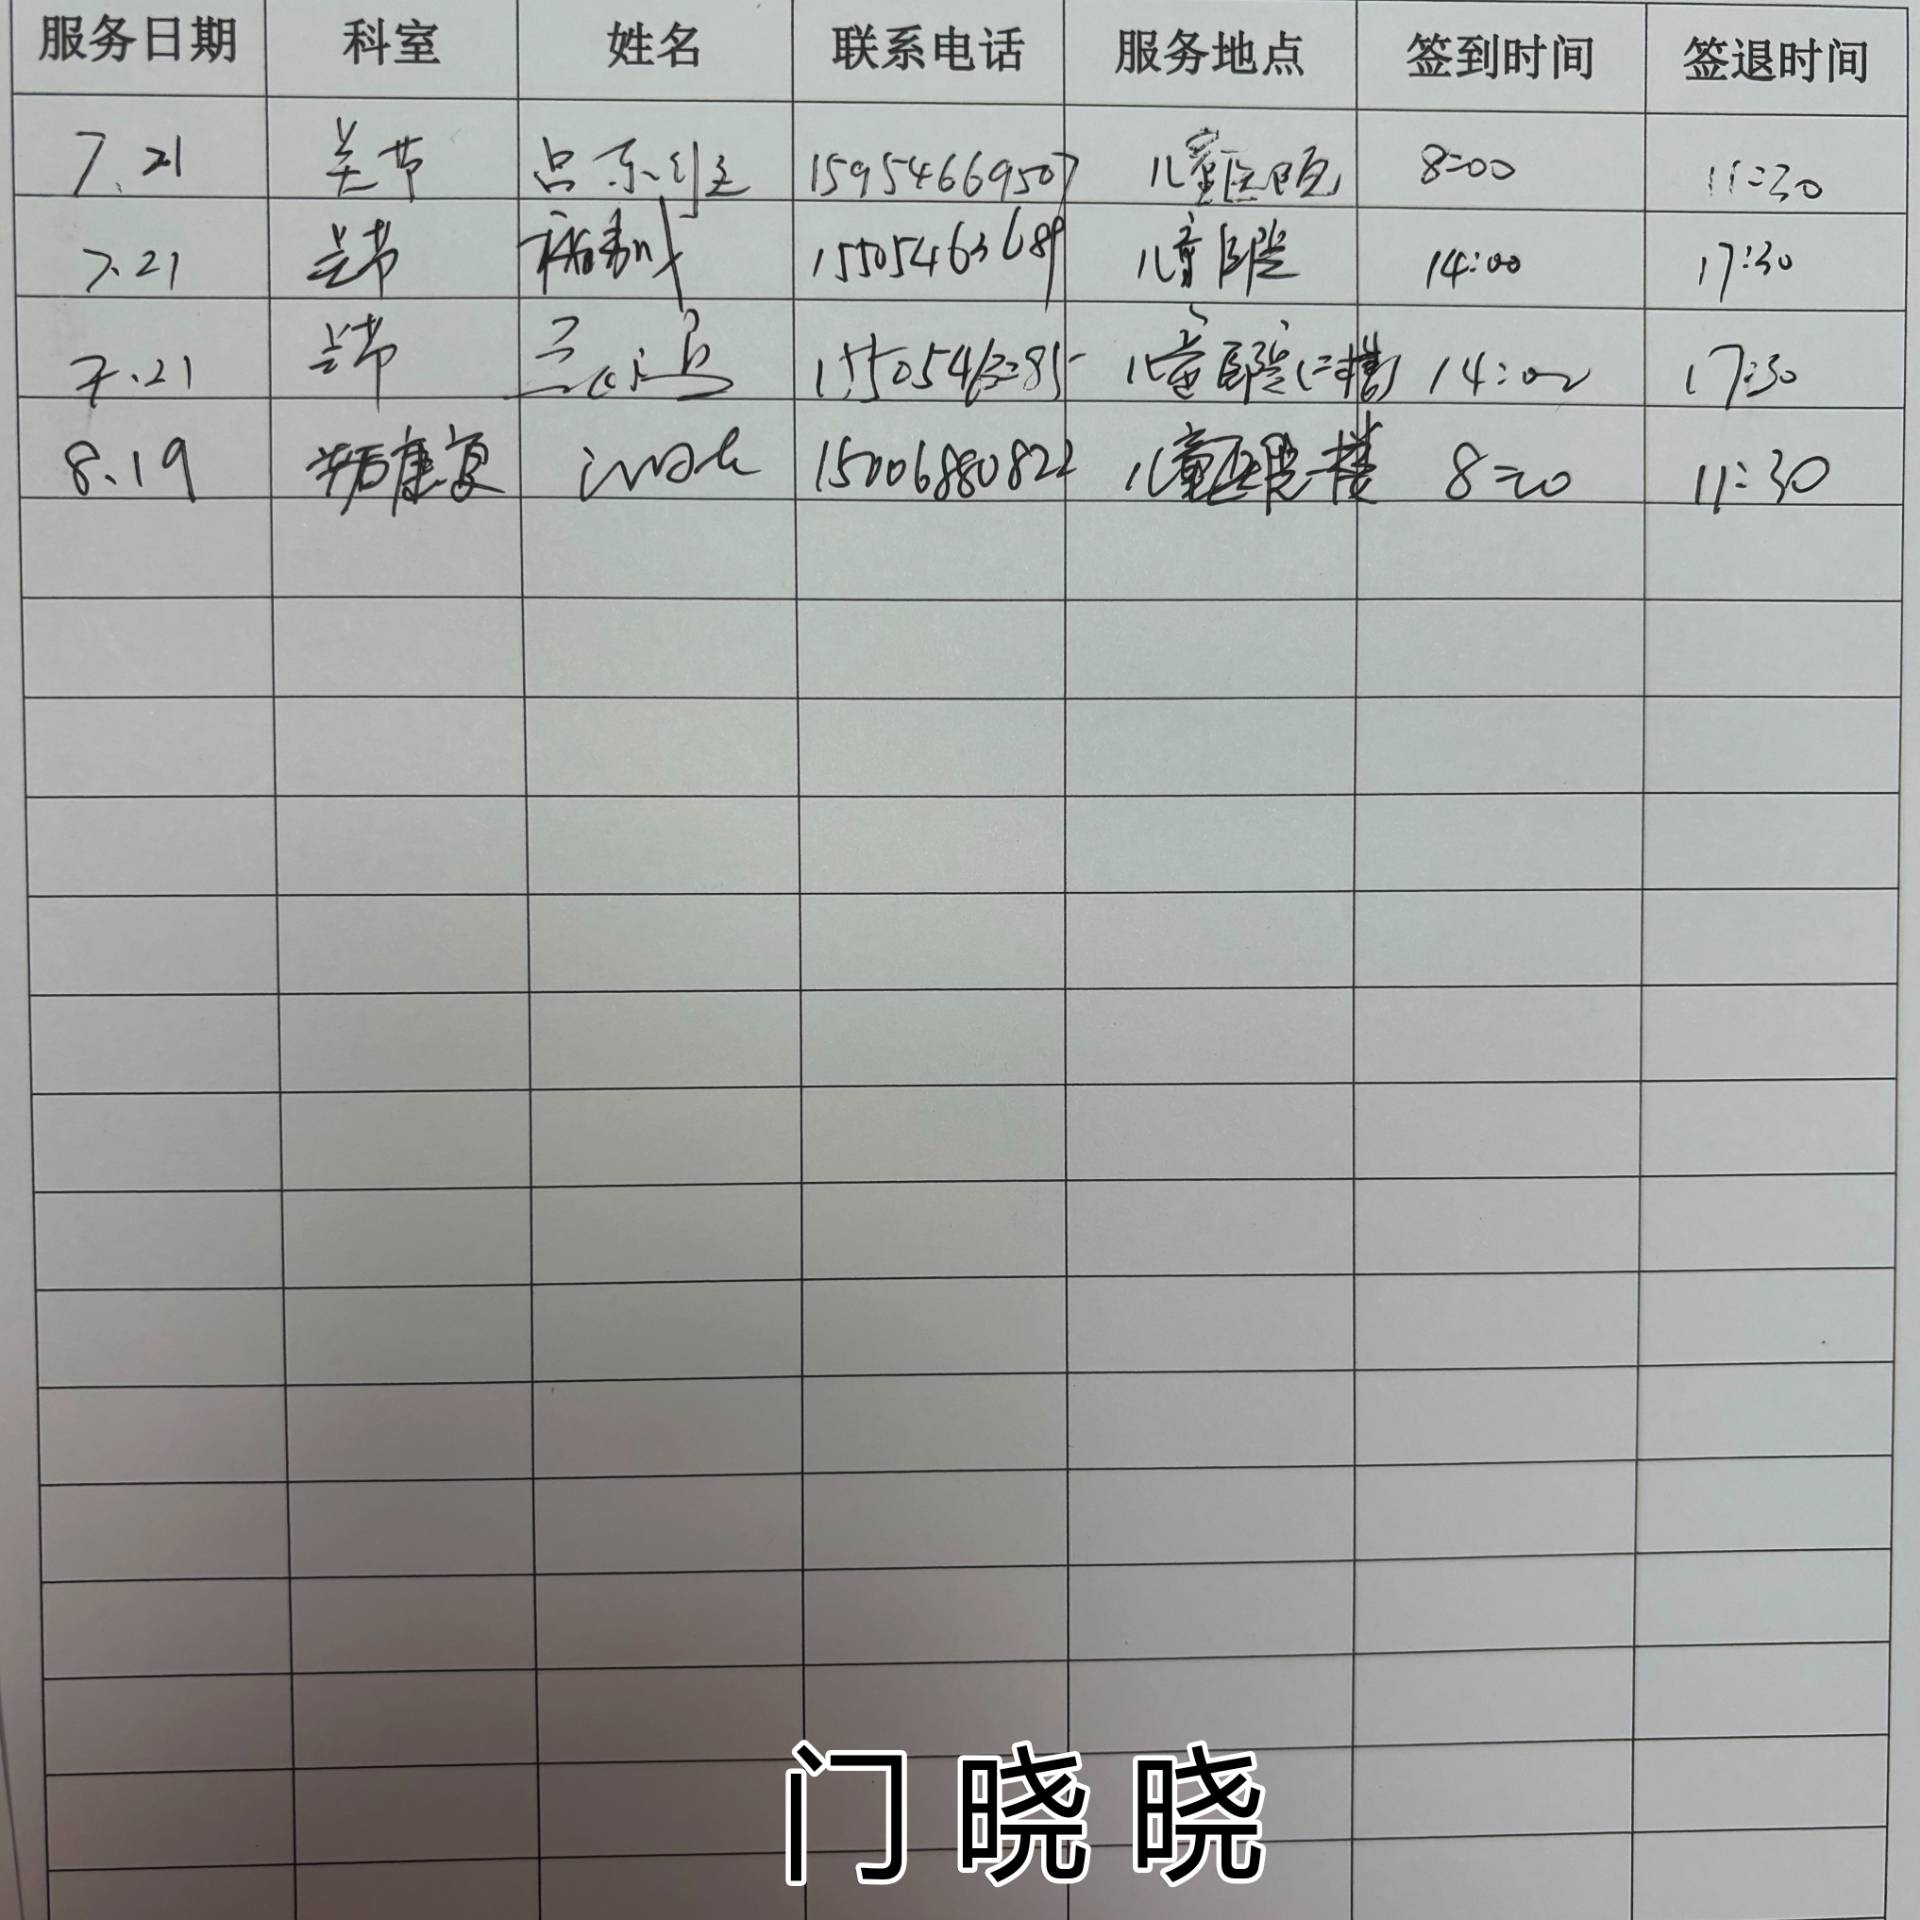 服务日期 科室 姓名 联系电话 服务地点 签到时间 签退时间
7.21 关节 15954669507 儿童医院 8:00 11:30
7.21 关节 15505463689 儿童医院 14:00 17:30
7.21 关节 儿童医院(二楼) 14:00 17:30
8.19 康复 15006880822 儿童医院一楼 8:00 11:30
门晓晓